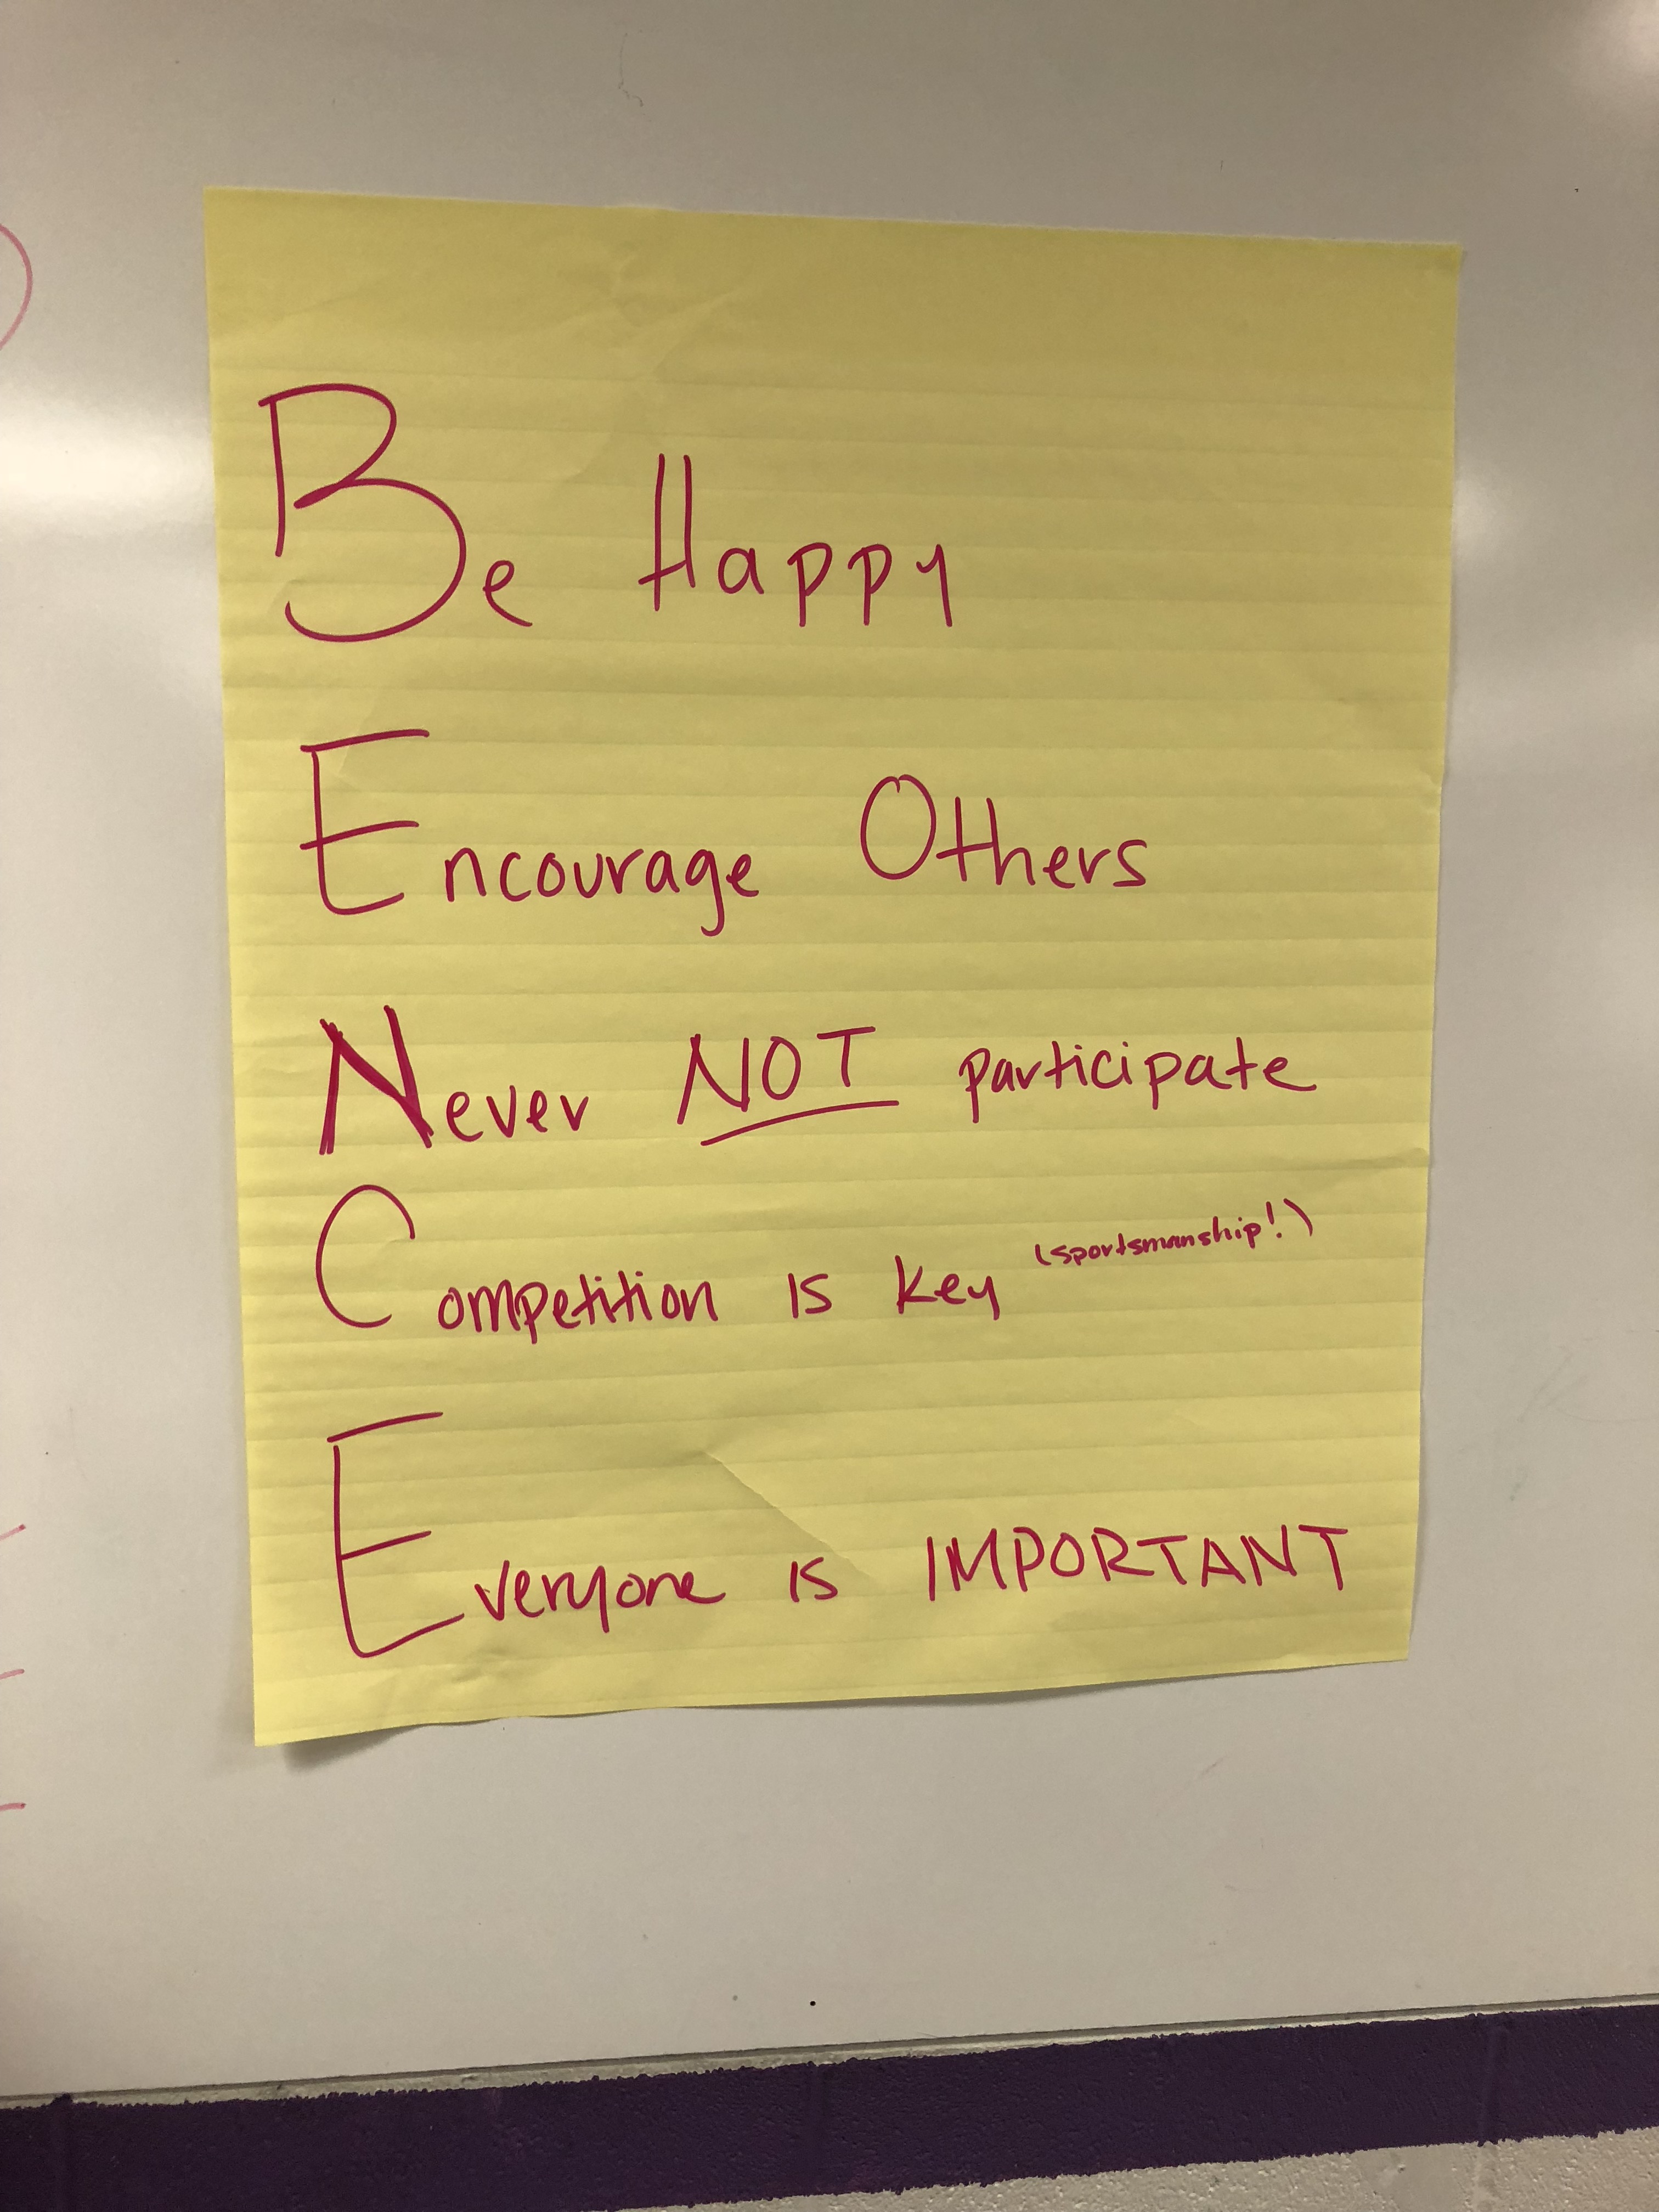 Be Happy
Encourage Others
Never NOT participate
Competition is key (sportsmanship!)
Everyone is IMPORTANT